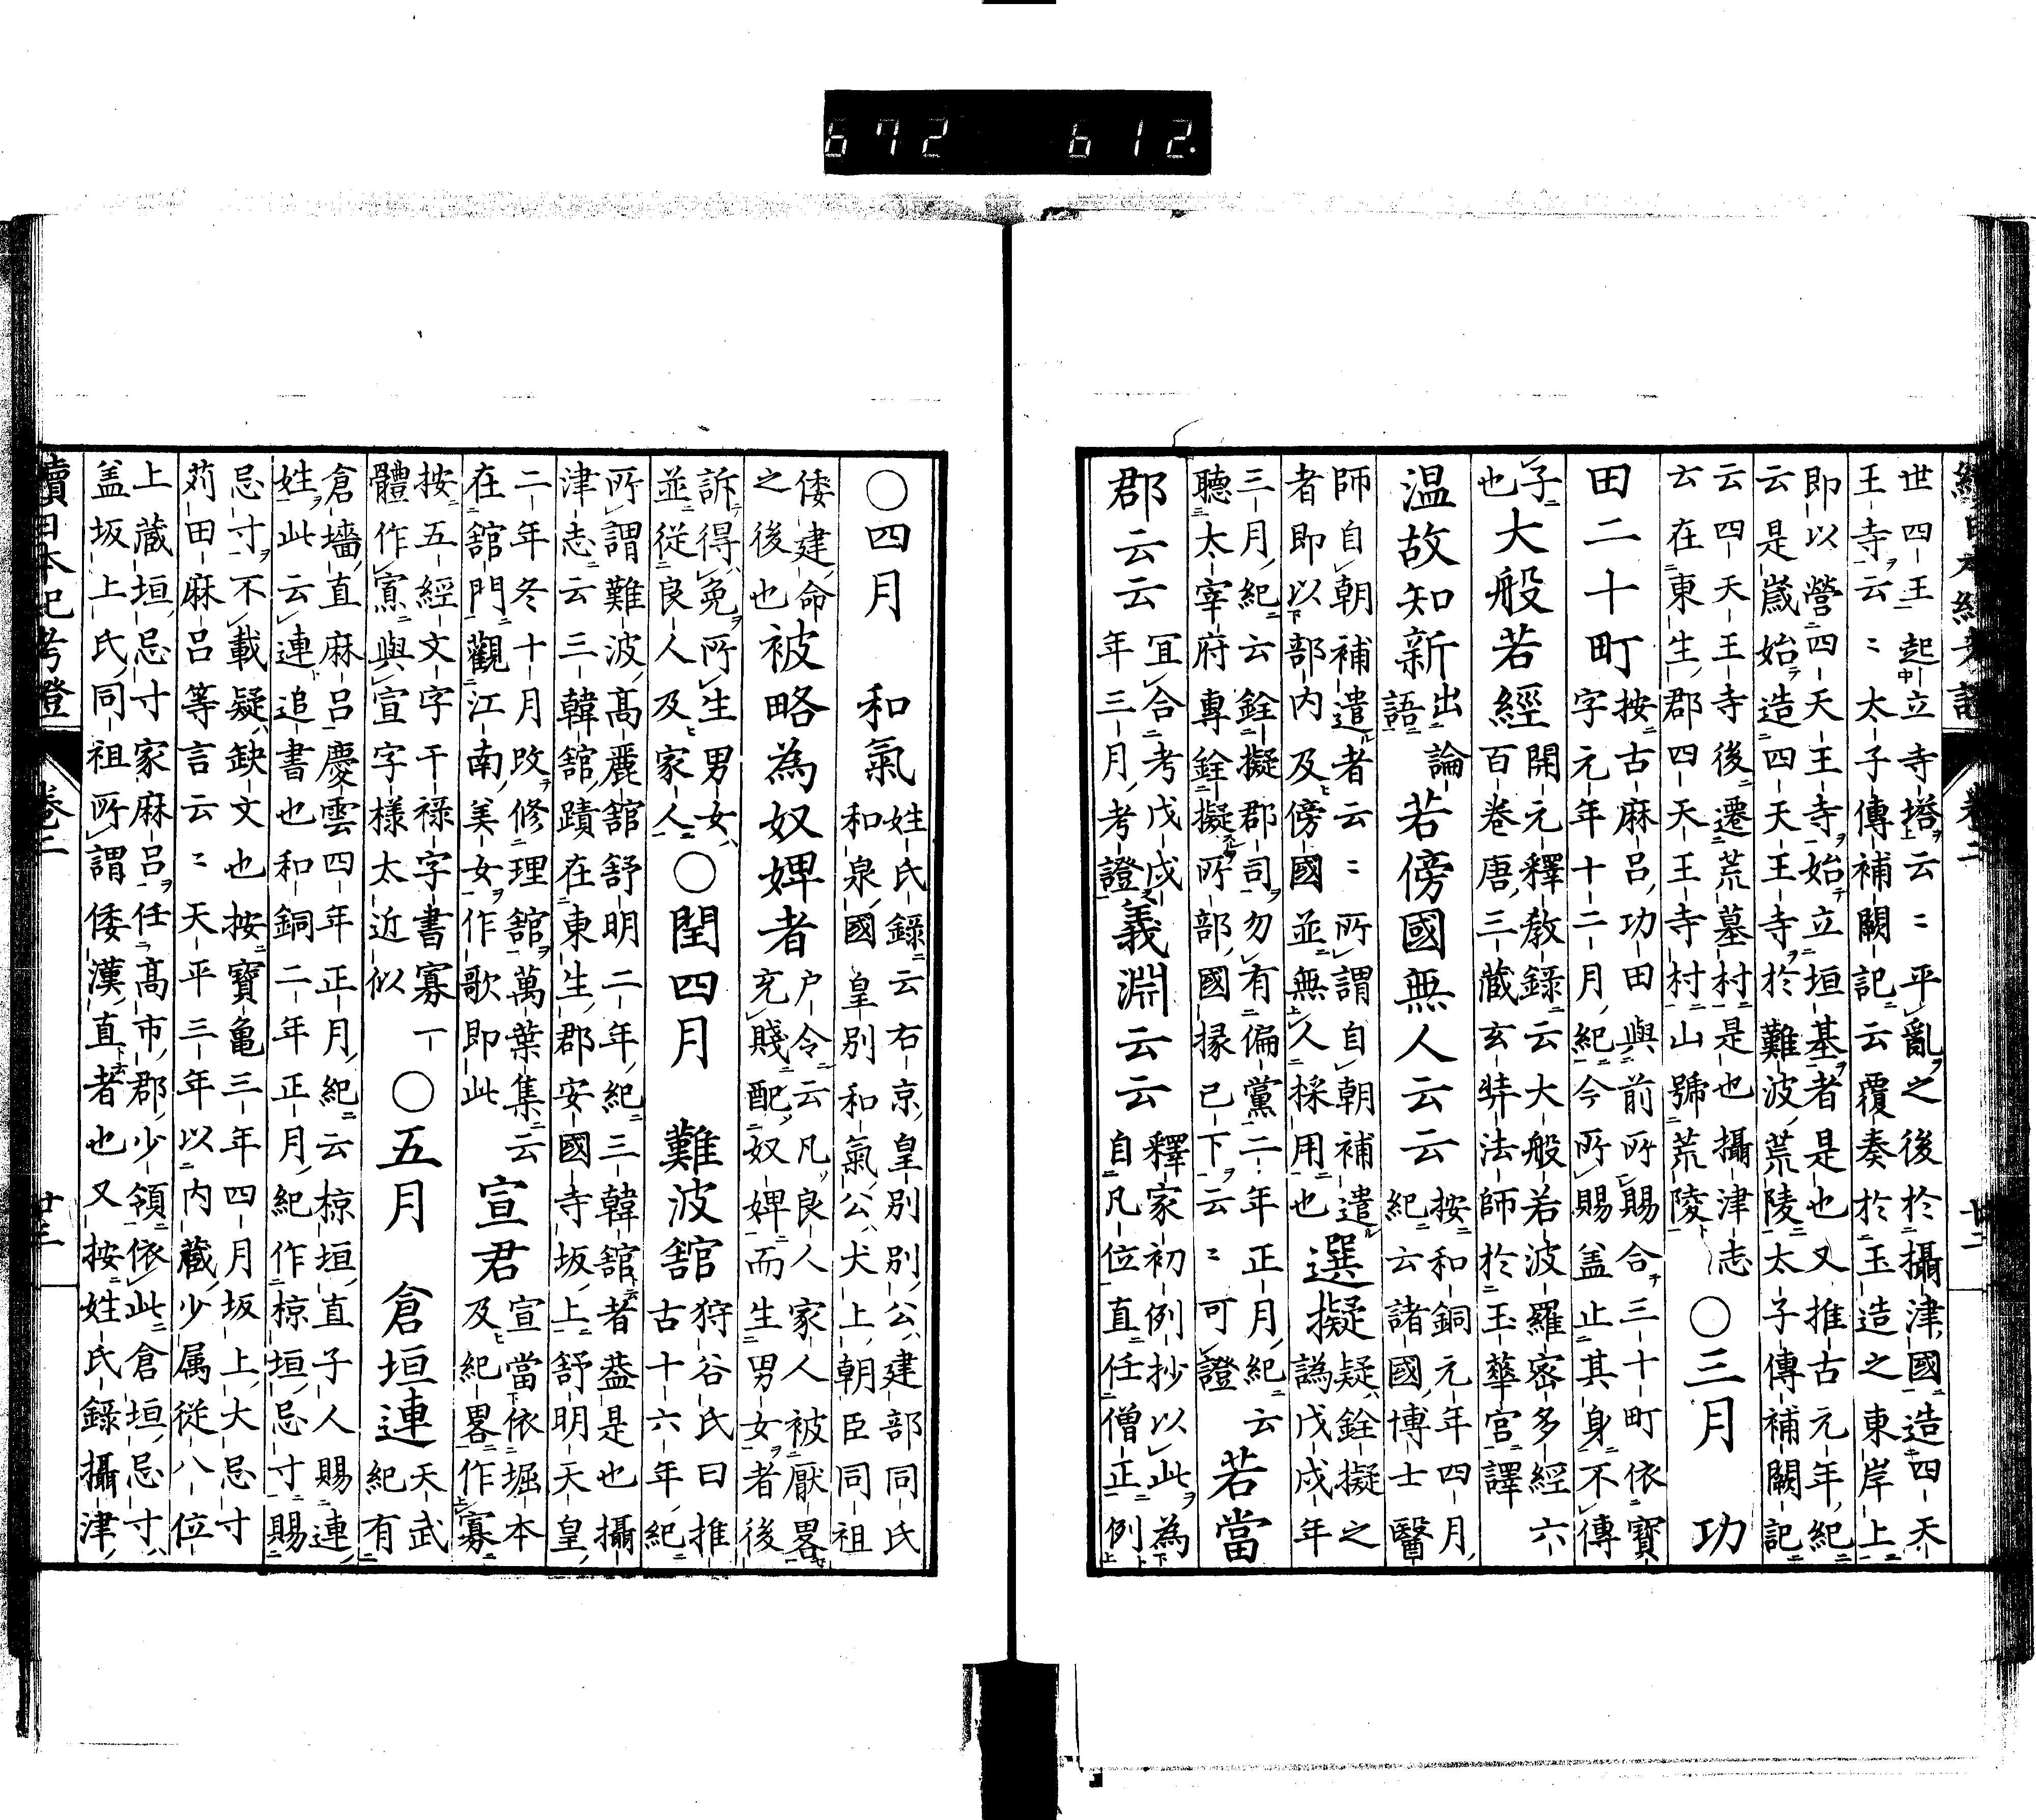 672 612.
世四王起立寺塔云〻平亂之後於攝津國造四天
王寺云〻太子傳補闕記云覆奏於玉造之東岸上
即以營四天王寺始立垣基者是也又推古元年紀
云是歳始造四天王寺於難波荒陵太子傳補闕記
云四天王寺後遷荒墓村是也攝津志
云在東生郡四天王寺村山號荒陵
○三月 功
田二十町
按古麻呂功田與前所賜合三十町依寶
字元年十二月紀今所賜盖止其身不傳
子
也
大般若經
開元釋教錄云大般若波羅密多經六
百巻唐三蔵玄奘法師於玉華宮譯
温故知新
出論
語
若傍國無人云云
按和銅元年四月
紀云諸國博士醫
師自朝補遣者云〻所謂自朝補遣
者即以部内及傍國並無人採用也
選擬
疑銓擬之
譌戊戌年
三月紀云銓擬郡司勿有偏黨二年正月紀云
聴太宰府專銓擬所部國掾已下云〻可證
若當
郡云云
冝合考戊戌
年三月考證
義淵云云
釋家初例抄以此為
自凡位直任僧正例
○四月 和氣
姓氏錄云右京皇別別公建部同氏
和泉國皇別和氣公犬上朝臣同祖
倭建命
之後也
被略為奴婢者
户令云凡良人家人被厭畧
充賤配奴婢而生男女者後
訴得免所生男女
並従良人及家人
○閏四月 難波舘
狩谷氏曰推
古十六年紀
所謂難波髙麗舘舒明二年紀三韓舘者葢是也攝
津志云三韓舘蹟在東生郡安國寺坂上舒明天皇
二年冬十月攺修理舘萬葉集云
在舘門觀江南美女作歌即此
宣君
宣當依堀本
及紀畧作寡
按五經文字干禄字書寡一
體作𡩋與宣字様太近似
○五月 倉垣連
天武
紀有
倉墻直麻呂慶雲四年正月紀云椋垣直子人賜連
姓此云連追書也和銅二年正月紀作椋垣忌寸賜
忌寸不載疑缺文也按寶亀三年四月坂上大忌寸
苅田麻呂等言云〻天平三年以内蔵少属従八位
上蔵垣忌寸家麻呂任髙市郡少領依此倉垣忌寸
盖坂上氏同祖所謂倭漢直者也又按姓氏錄攝津
續日本紀考證 巻二 廿三